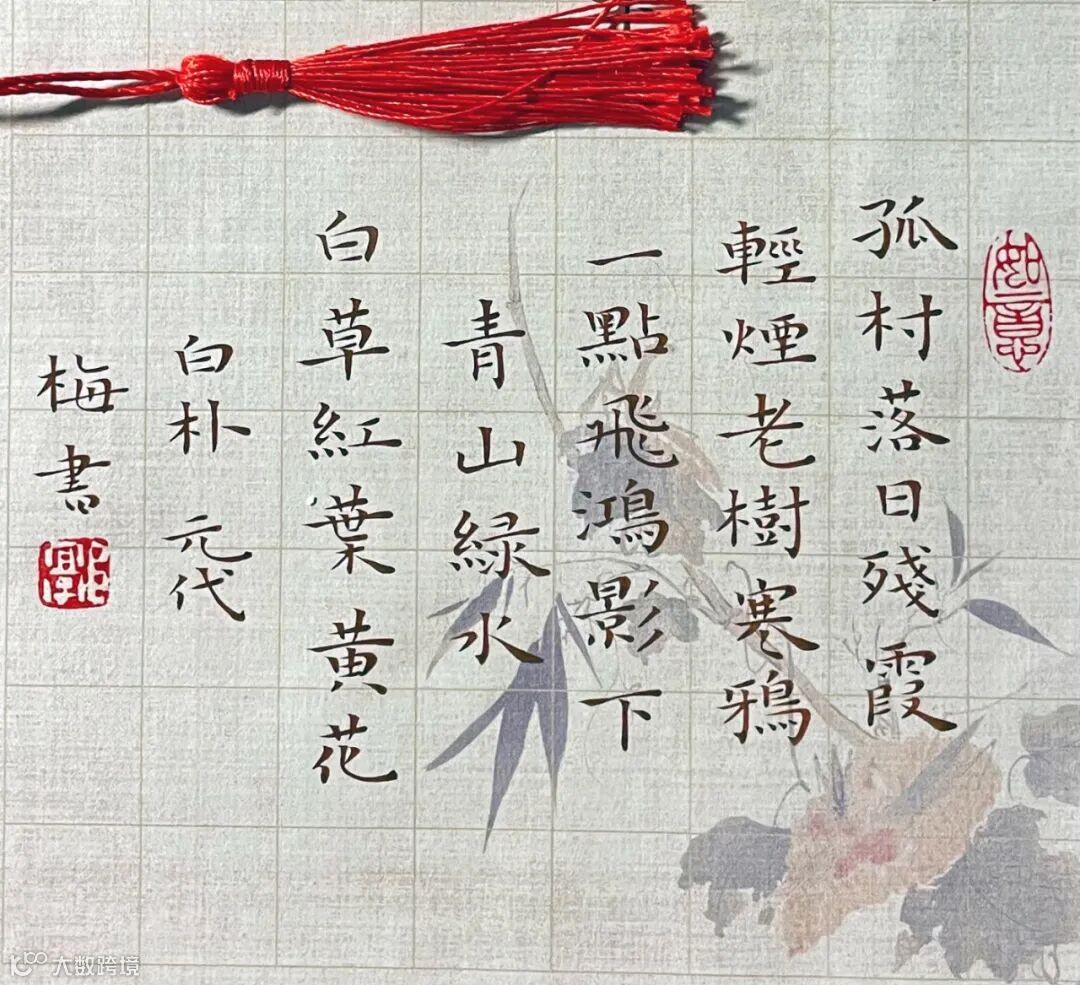 如意
孤村落日殘霞
輕煙老樹寒鴉
一點飛鴻影下
青山緑水
白草紅葉黄花
白朴 元代
梅書
大数跨境